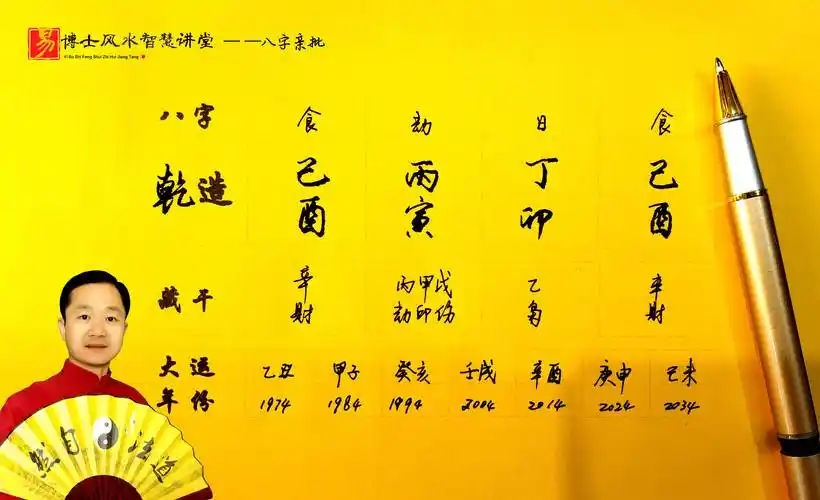 易 博士风水智慧讲堂 ——八字亲批
Yi Bo Shi Feng Shui Zhi Hui Jiang Tang
八字 食 劫 日 食
乾造 己 丙 丁 己
酉 寅 卯 酉
藏干 辛 丙甲戊 乙 辛
财 劫印伤 枭 财
大运 乙丑 甲子 癸亥 壬戌 辛酉 庚申 己未
年份 1974 1984 1994 2004 2014 2024 2034
然自法道